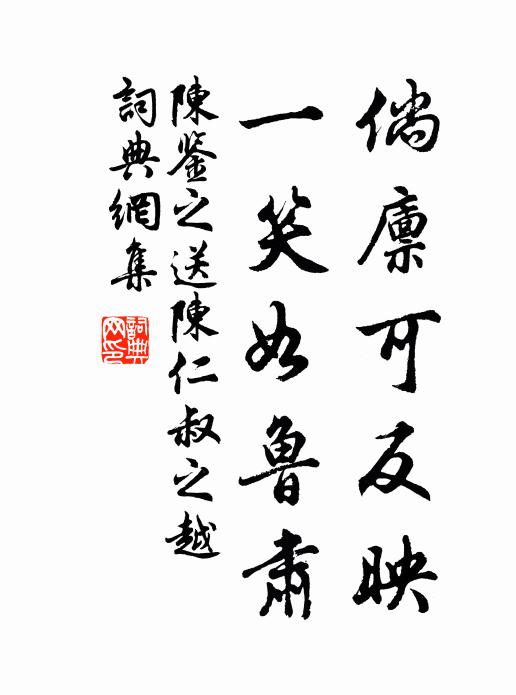 倘廪可反映
一笑如魯肅
陳鉴之送陳仁叔之越
詞典網集
詞典网印